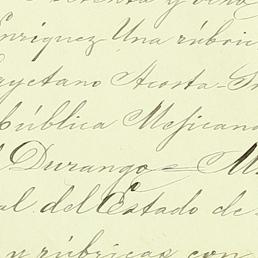 y una
nriquez Una rúbric
ayetano Acosta-
pública Mejicana
Durango = M
al del Estado de
y rúbricas con